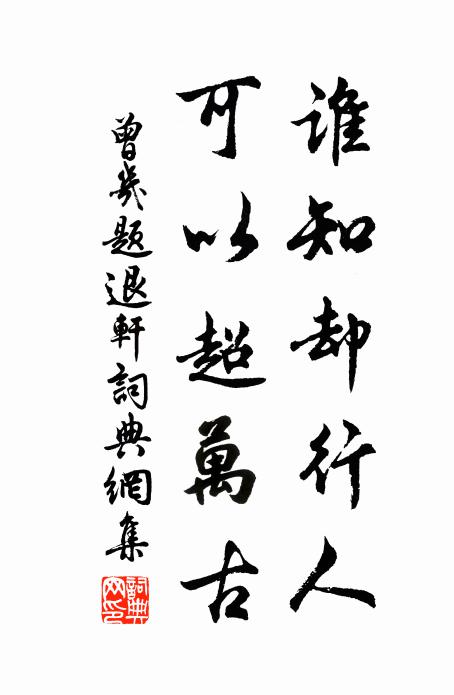 誰知却行人
可以超萬古
曾幾題退軒詞典網集
詞典網印